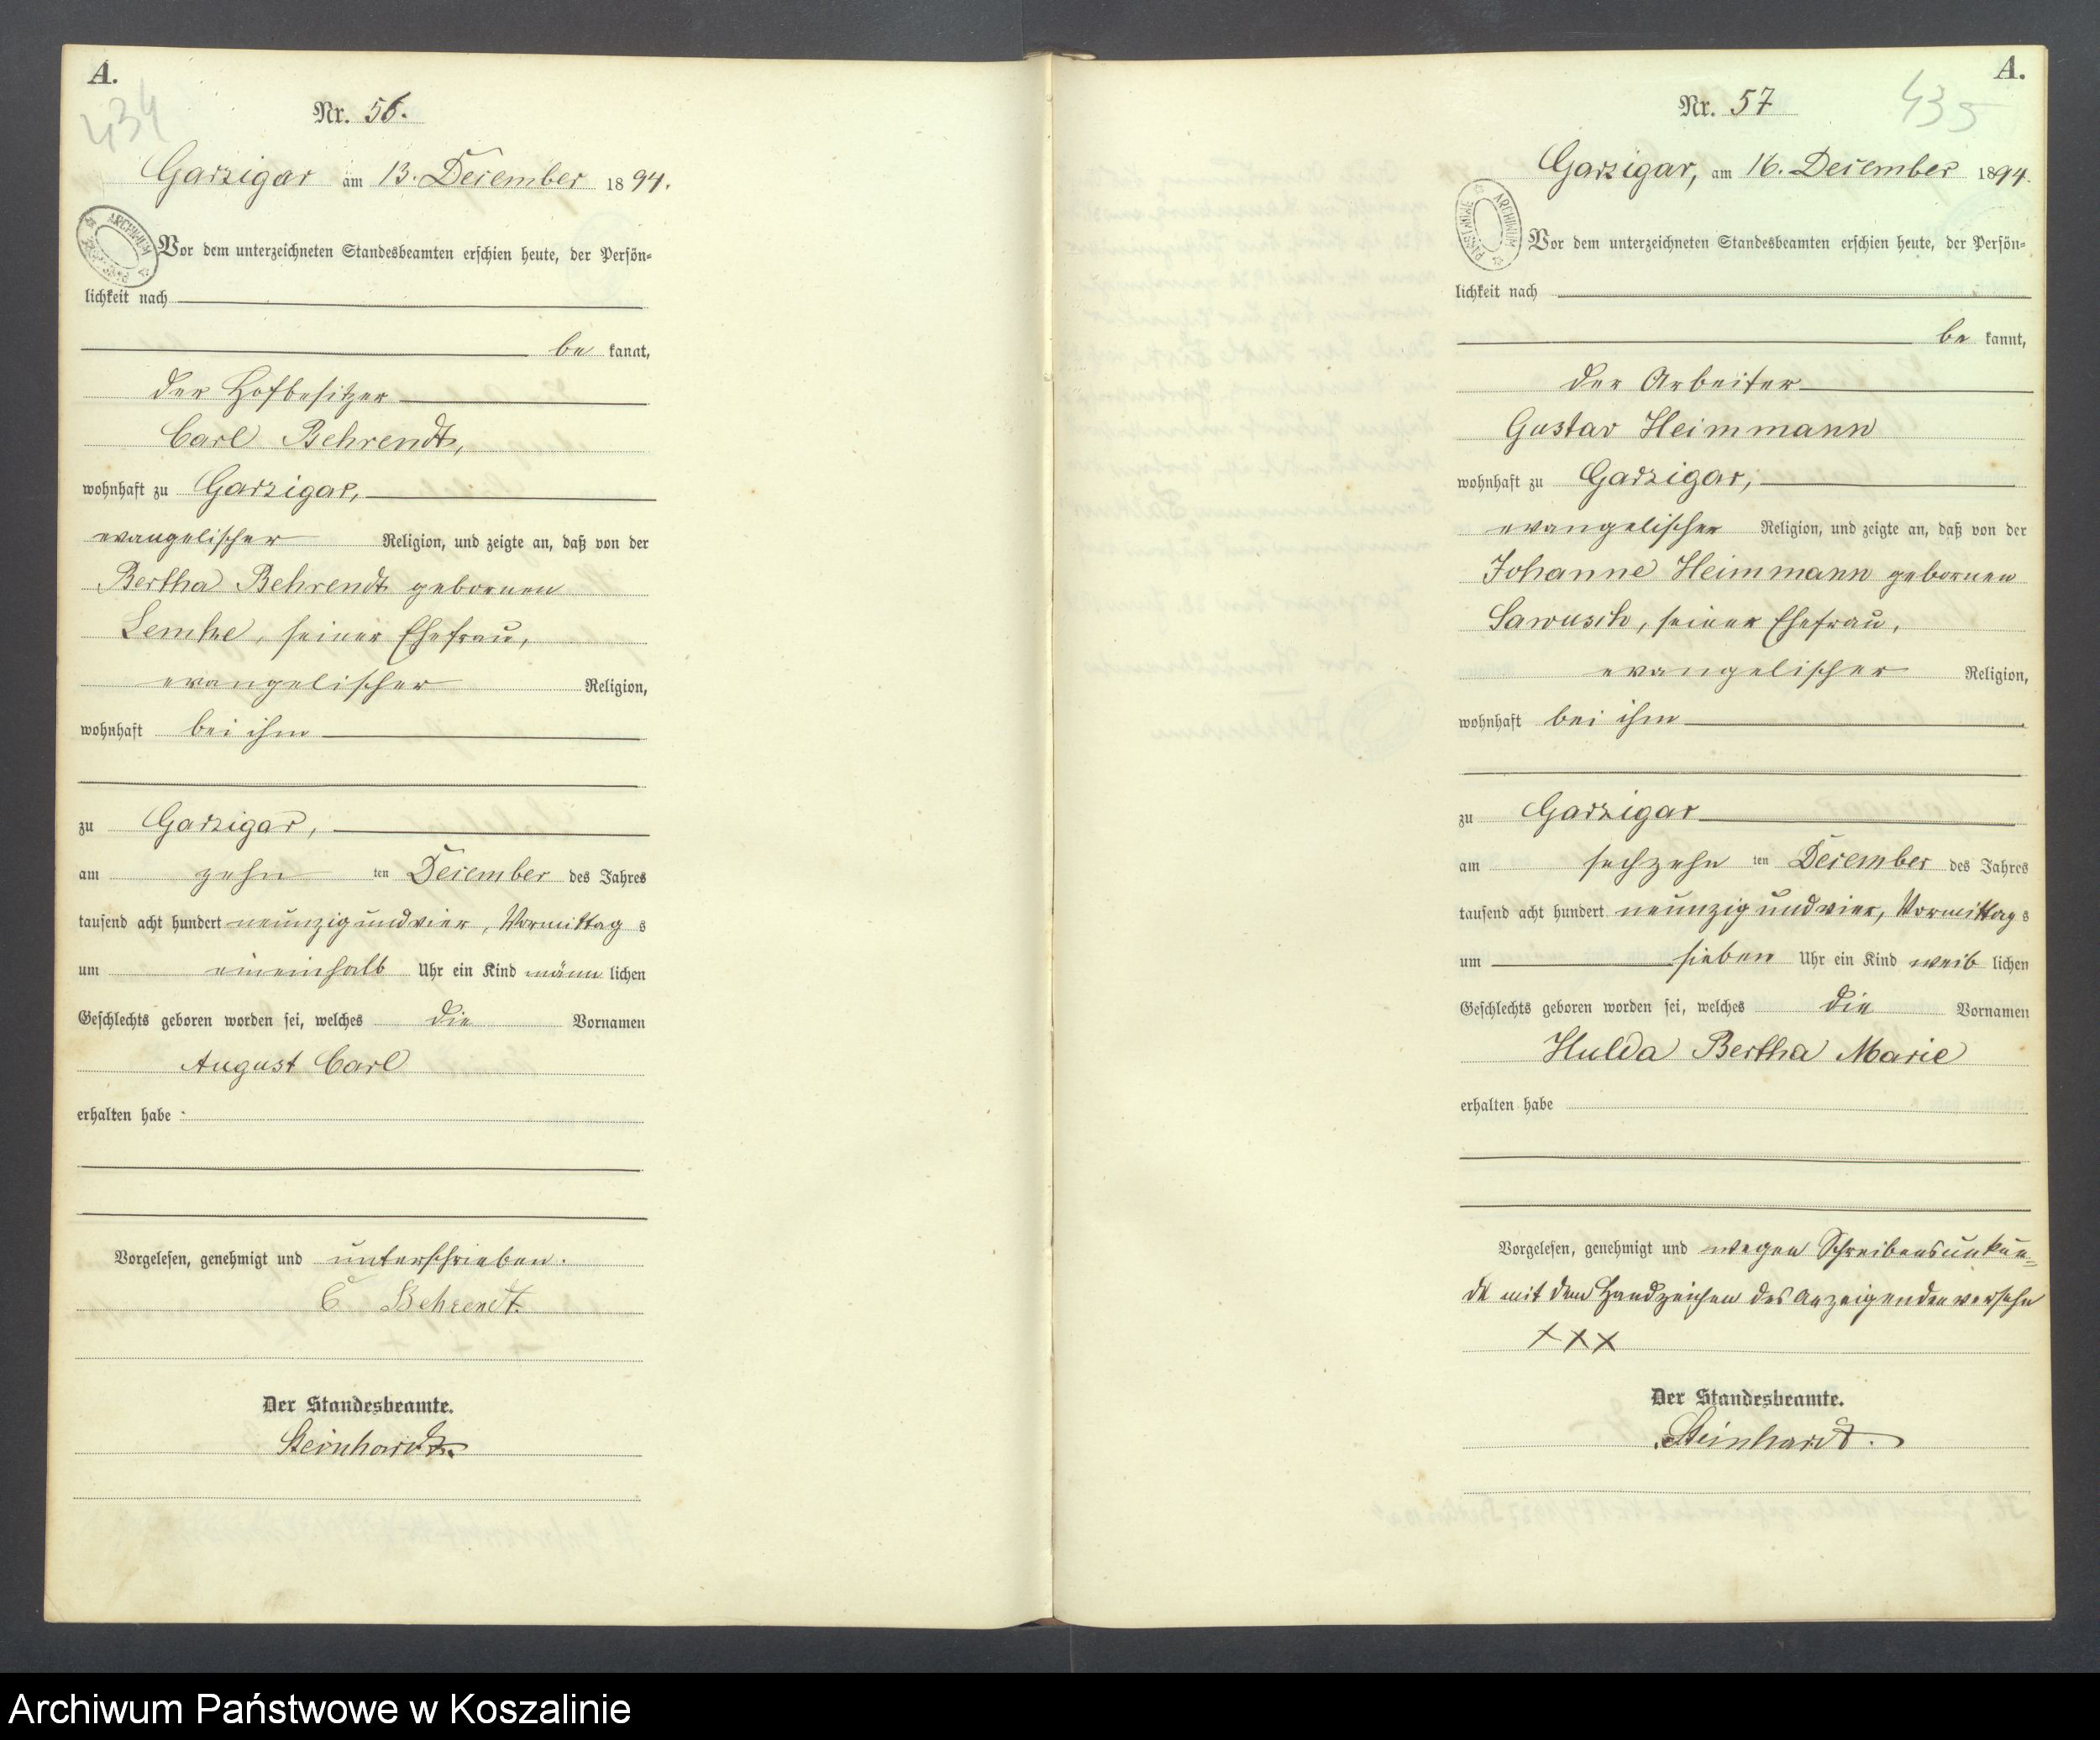 A.
434
Nr. 56.
Garzigar am 13. Dezember 1894.
Vor dem unterzeichneten Standesbeamten erschien heute, der Persön=
lichkeit nach
be kannt,
der Hofbesitzer
Carl Behrendt,
wohnhaft zu Garzigar,
evangelischer Religion, und zeigte an, daß von der
Bertha Behrendt gebornen
Lemke, seiner Ehefrau,
evangelischer Religion,
wohnhaft bei ihm
zu Garzigar,
am zehn ten Dezember des Jahres
tausend acht hundert neunzig und vier, Vormittag s
um eineinhalb Uhr ein Kind männ lichen
Geschlechts geboren worden sei, welches die Vornamen
August Carl
erhalten habe
Vorgelesen, genehmigt und unterschrieben.
C Behrendt
Der Standesbeamte.
Steinhardt.
A.
435
Nr. 57
Garzigar, am 16. Dezember 1894.
ARCHIWUM PAŃSTWOWE
Vor dem unterzeichneten Standesbeamten erschien heute, der Persön=
lichkeit nach
be kannt,
der Arbeiter
Gustav Heimmann
wohnhaft zu Garzigar,
evangelischer Religion, und zeigte an, daß von der
Johanne Heimmann gebornen
Sawusch, seiner Ehefrau,
evangelischer Religion,
wohnhaft bei ihm
zu Garzigar
am sechzehn ten Dezember des Jahres
tausend acht hundert neunzig und vier, Vormittag s
um sieben Uhr ein Kind weib lichen
Geschlechts geboren worden sei, welches die Vornamen
Hulda Bertha Marie
erhalten habe
Vorgelesen, genehmigt und wegen Schreibensunkun=
de mit dem Handzeichen des Anzeigenden versehn
XXX
Der Standesbeamte.
Steinhardt.
Archiwum Państwowe w Koszalinie